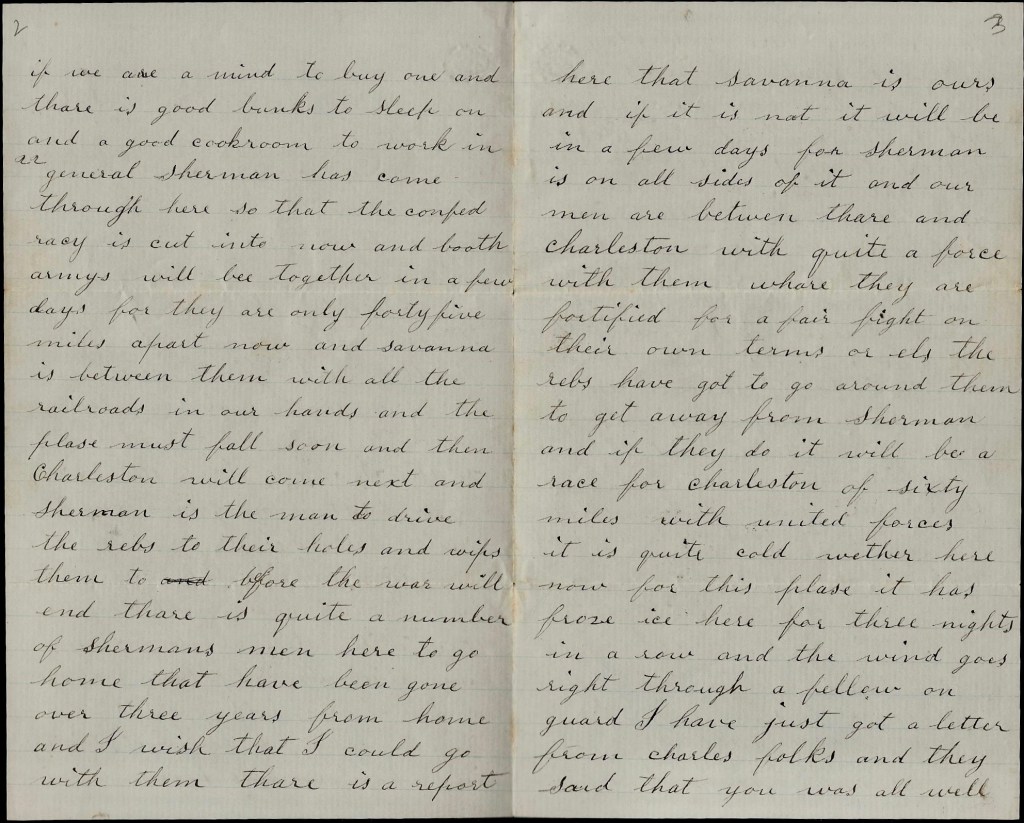 2
if we are a mind to buy one and
thare is good bunks to sleep on
and a good cookroom to work in
general Sherman has come
through here so that the confed
racy is cut into now and booth
armys will bee together in a few
days for they are only fortyfive
miles apart now and savanna
is between them with all the
railroads in our hands and the
plase must fall soon and then
Charleston will come next and
Sherman is the man to drive
the rebs to their holes and wips
them to and before the war will
end thare is quite a number
of Shermans men here to go
home that have been gone
over three years from home
and I wish that I could go
with them thare is a report
3
here that savanna is ours
and if it is not it will be
in a few days for Sherman
is on all sides of it and our
men are betwen thare and
charleston with quite a force
with them whare they are
fortified for a fair fight on
their own terms or els the
rebs have got to go around them
to get away from Sherman
and if they do it will be a
race for charleston of sixty
miles with united forces
it is quite cold wether here
now for this plase it has
froze ice here for three nights
in a row and the wind goes
right through a fellow on
guard I have just got a letter
from charles folks and they
said that you was all well